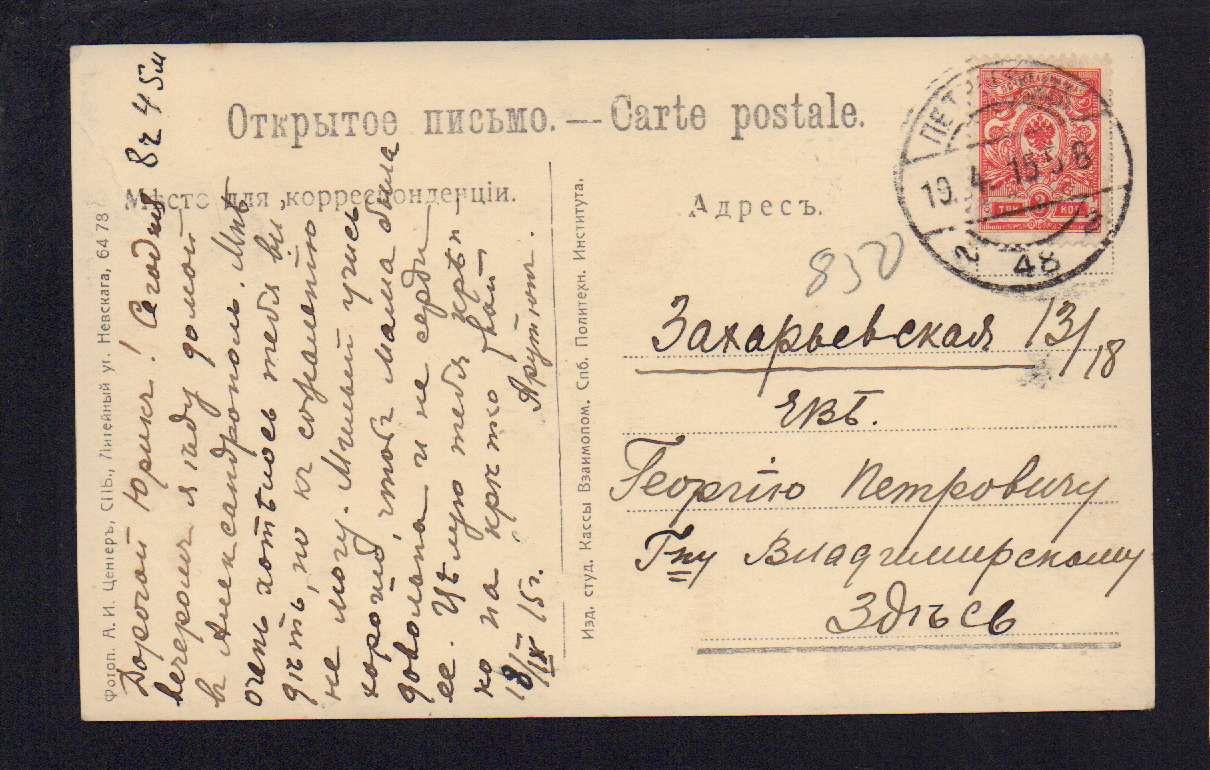 Открытое письмо. — Carte postale.
Мѣсто для корреспонденціи.
Адресъ.
19.4.15
48
2
ТРИ 3 КОП
850
Захарьевская 13/18
ЕВБ.
Георгію Петровичу
Г-ну Владимирскому
Здѣсь
8ч 45м
Дорогой Юрикъ! Сегодня
вечеромъ я иду домой
в Александрополь. Мнѣ
очень хотѣлось тебя ви
дѣть, но къ сожалѣнію
не могу. Милый учись
хорошо, чтобъ мама была
довольна и не серди
ее. Цѣлую тебя крѣп-
ко на крѣпко твой
18/IV 15г. Арутюн.
Изд. студ. Кассы Взаимопом. Спб. Политехн. Института.
Фотоп. А. И. Центеръ, СПБ., Литейный уг. Невскаго, 64 78